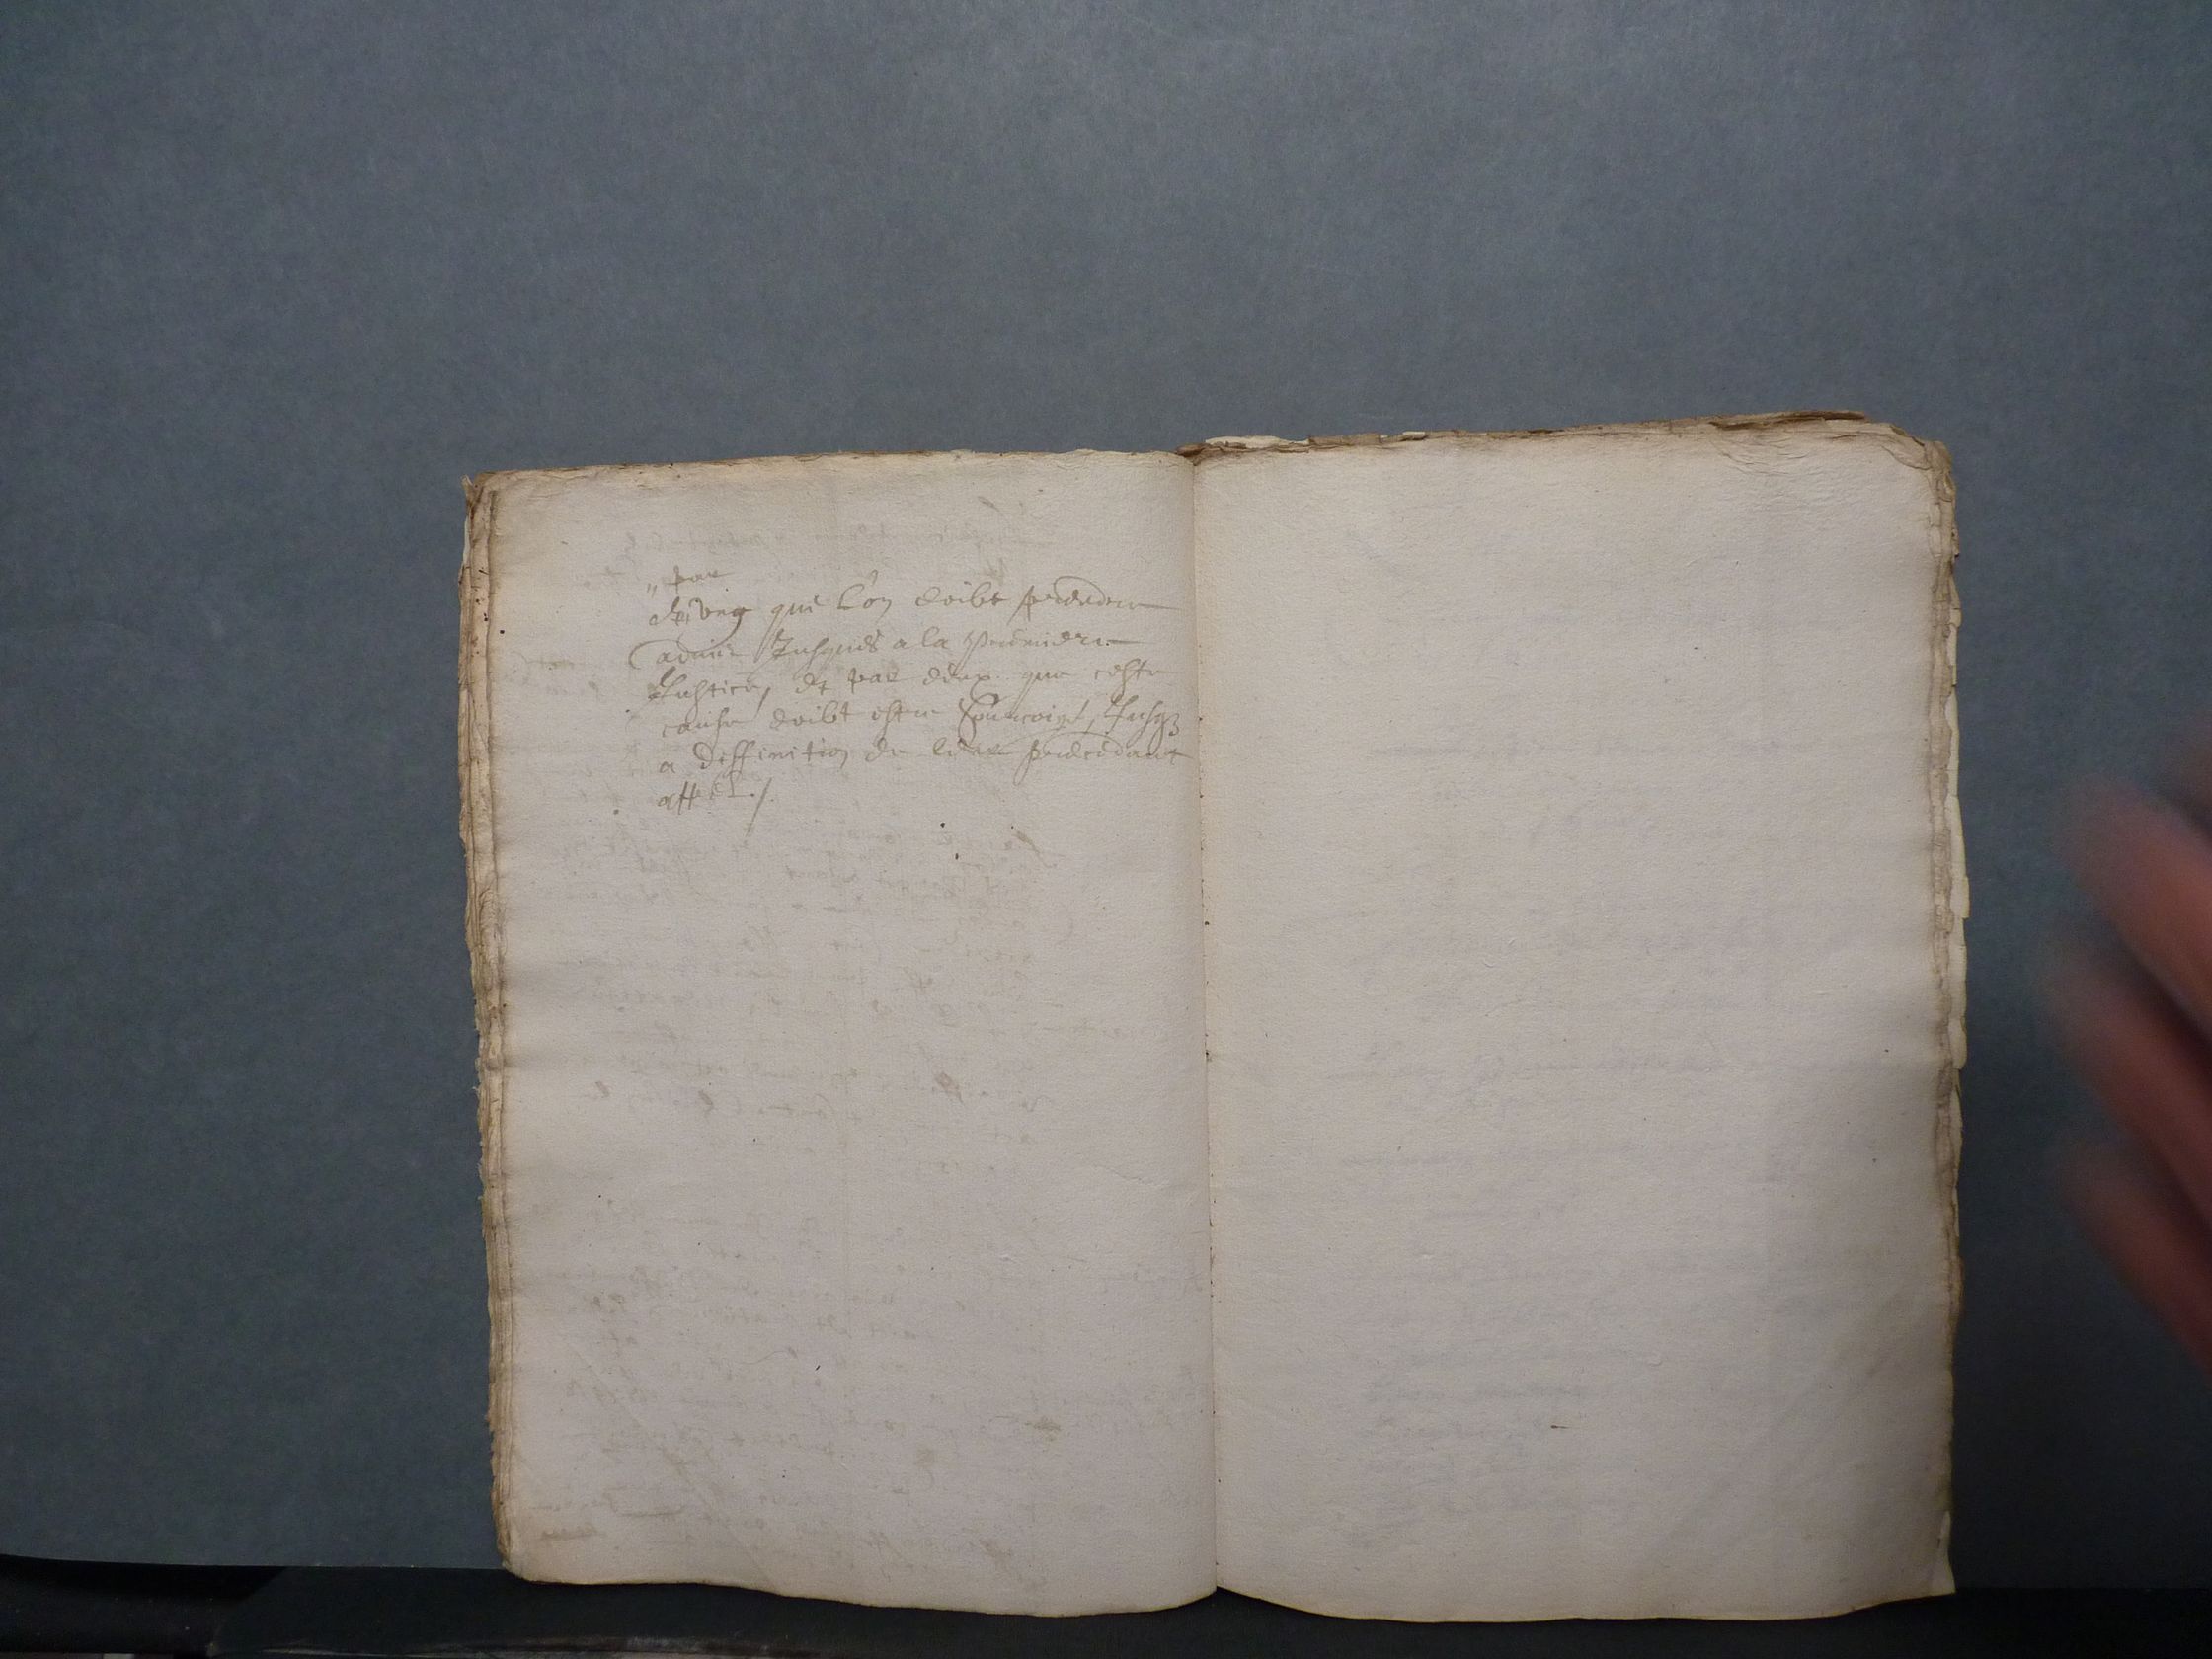 par
ung que l'on doibt proceder
advant Jusques a la premiere
Justice, et par deux que ceste
cause doibt estre Jusqz
a diffinition de leur precedant
appel ./.